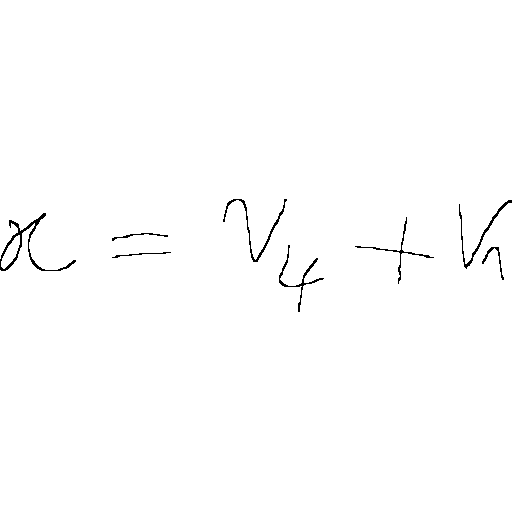 x = V₄ + V₁